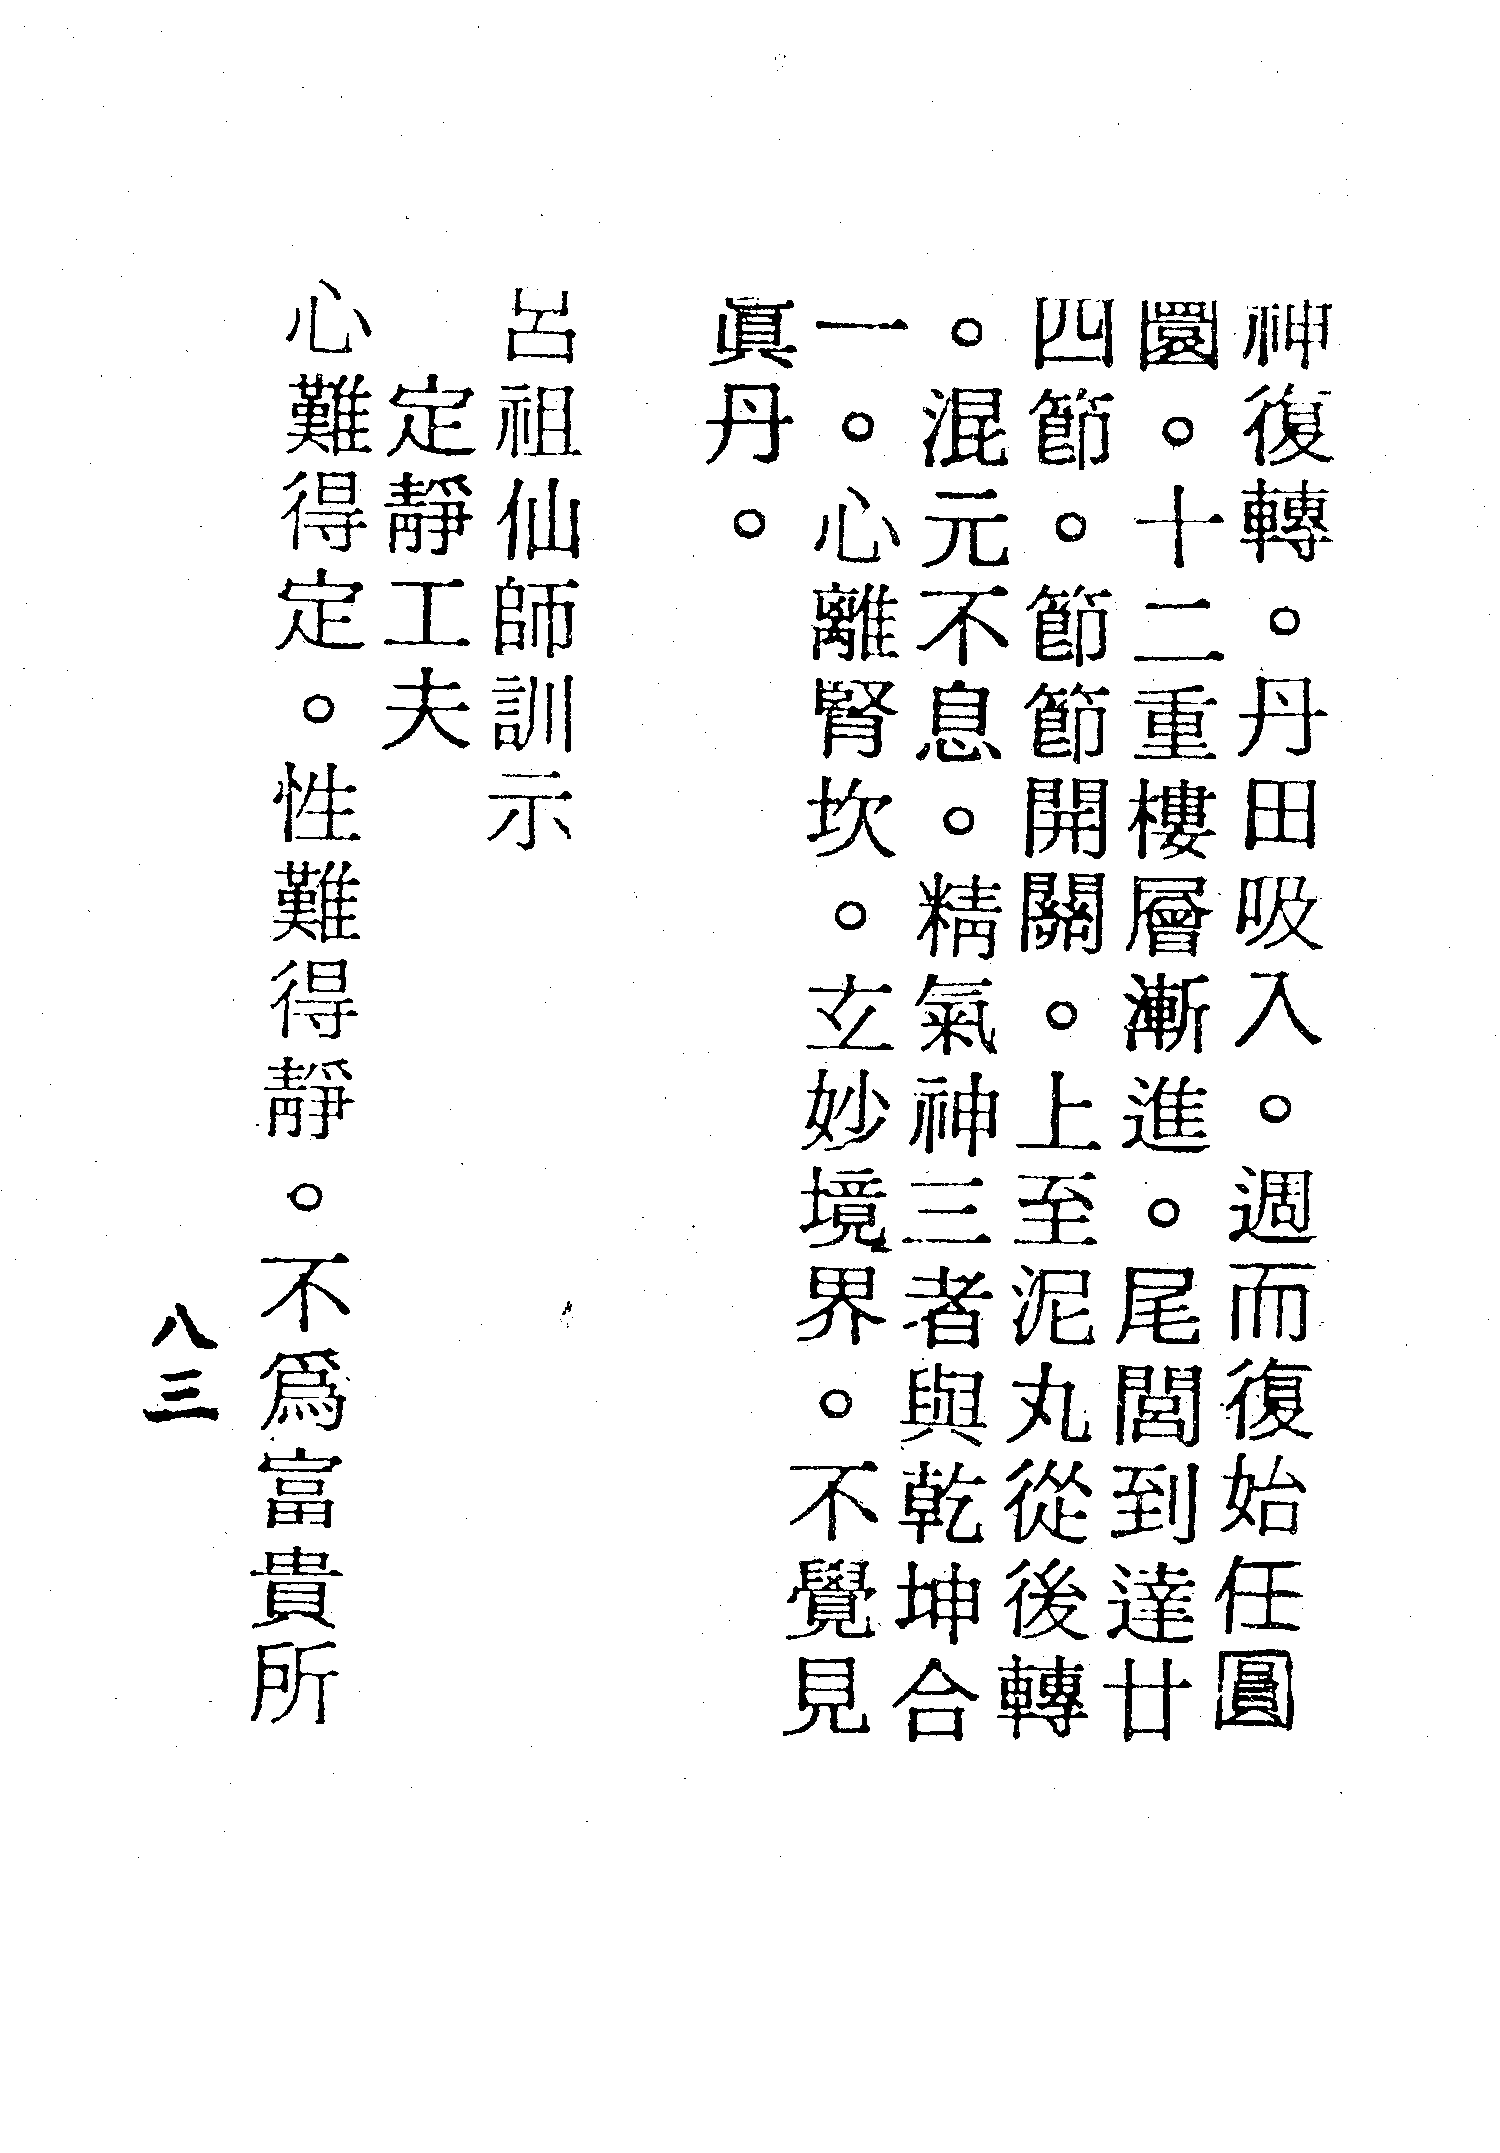 神復轉。丹田吸入。週而復始任圓
圜。十二重樓層漸進。尾閭到達廿
四節。節節開關。上至泥丸從後轉
。混元不息。精氣神三者與乾坤合
一。心離腎坎。玄妙境界。不覺見
眞丹。
呂祖仙師訓示
定靜工夫
心難得定。性難得靜。不爲富貴所
八三